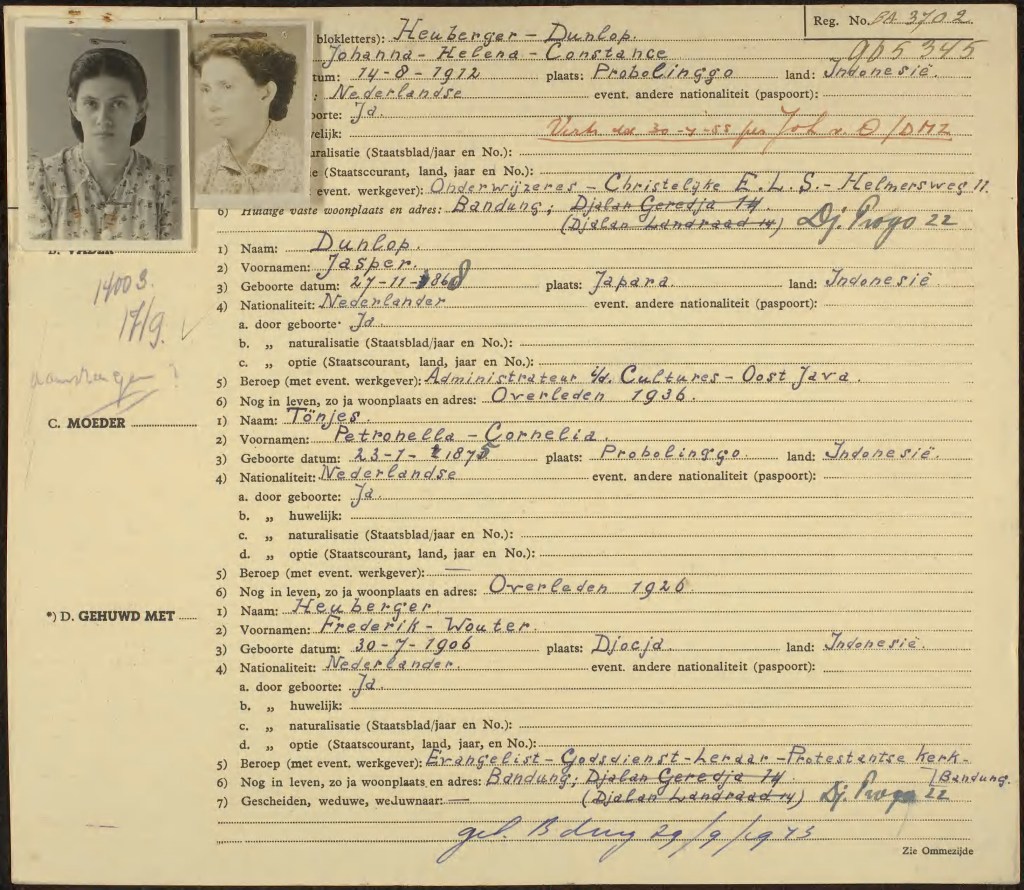 Reg. No. BA 3702
905345
blokletters): Heuberger – Dunlop.
Johanna - Helena - Constance
tum: 14-8-1912 plaats: Probolinggo land: Indonesië.
: Nederlandse event. andere nationaliteit (paspoort):
oorte: Ja.
velijk:
uralisatie (Staatsblad/jaar en No.):
ie (Staatscourant, land, jaar en No.):
event. werkgever): Onderwijzeres – Christelijke E.L.S. - Helmersweg 11.
6) Huidige vaste woonplaats en adres: Bandung; Djalan Geredja 14
(Djalan Landraad 14) Dj. Progo 22
B. VADER
1) Naam: Dunlop.
2) Voornamen: Jasper.
3) Geboorte datum: 27-11-1868 plaats: Japara. land: Indonesië
4) Nationaliteit: Nederlander event. andere nationaliteit (paspoort):
a. door geboorte: Ja.
b. „ naturalisatie (Staatsblad/jaar en No.):
c. „ optie (Staatscourant, land, jaar en No.):
5) Beroep (met event. werkgever): Administrateur i/d. Cultures – Oost Java.
6) Nog in leven, zo ja woonplaats en adres: Overleden 1936.
14003
17/9.
C. MOEDER
1) Naam: Tönjes.
2) Voornamen: Petronella – Cornelia.
3) Geboorte datum: 23-7-1875 plaats: Probolinggo. land: Indonesië.
4) Nationaliteit: Nederlandse event. andere nationaliteit (paspoort):
a. door geboorte: Ja.
b. „ huwelijk:
c. „ naturalisatie (Staatsblad/jaar en No.):
d. „ optie (Staatscourant, land, jaar en No.):
5) Beroep (met event. werkgever): —
6) Nog in leven, zo ja woonplaats en adres: Overleden 1926
*) D. GEHUWD MET
1) Naam: Heuberger.
2) Voornamen: Frederik - Wouter.
3) Geboorte datum: 30-7-1906 plaats: Djocja. land: Indonesië.
4) Nationaliteit: Nederlander. event. andere nationaliteit (paspoort):
a. door geboorte: Ja.
b. „ huwelijk:
c. „ naturalisatie (Staatsblad/jaar en No.):
d. „ optie (Staatscourant, land, jaar, en No.):
5) Beroep (met event. werkgever): Evangelist - Godsdienst - Leraar - Protestantse Kerk -
6) Nog in leven, zo ja woonplaats en adres: Bandung; Djalan Geredja 14 Bandung.
7) Gescheiden, weduwe, weduwnaar: — (Djalan Landraad 14) Dj. Progo 22
Zie Ommezijde